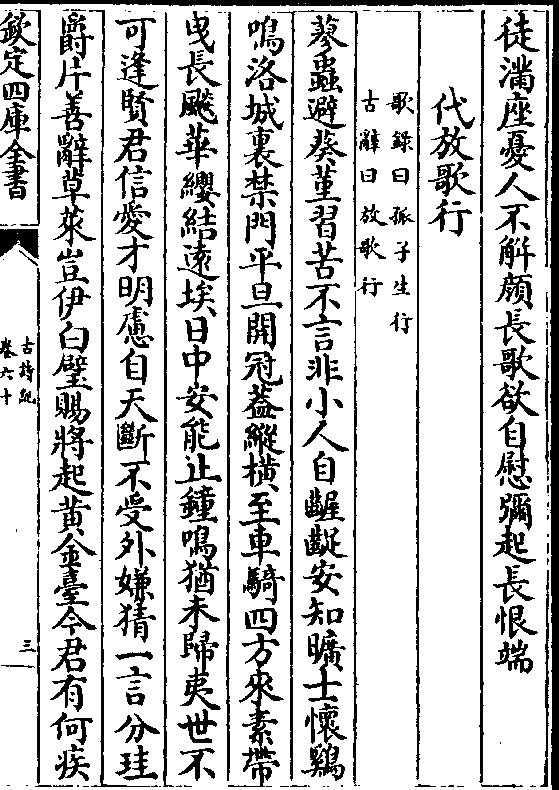 徒滿座憂人不解顔長歌欲自慰彌起長恨端
代放歌行
歌錄曰孤子生行
古辭曰放歌行
蓼蟲避葵堇習苦不言非小人自齷齪安知曠士懷鷄
鳴洛城裏禁門平旦開冠蓋縱橫至車騎四方來素帶
曵長飈華纓結遠埃日中安能止鐘鳴猶未歸夷世不
可逢賢君信愛才明慮自天斷不受外嫌猜一言分珪
爵片善辭草萊豈伊白璧賜將起黄金臺今君有何疾
欽定四庫全書
古詩紀
卷六十
三